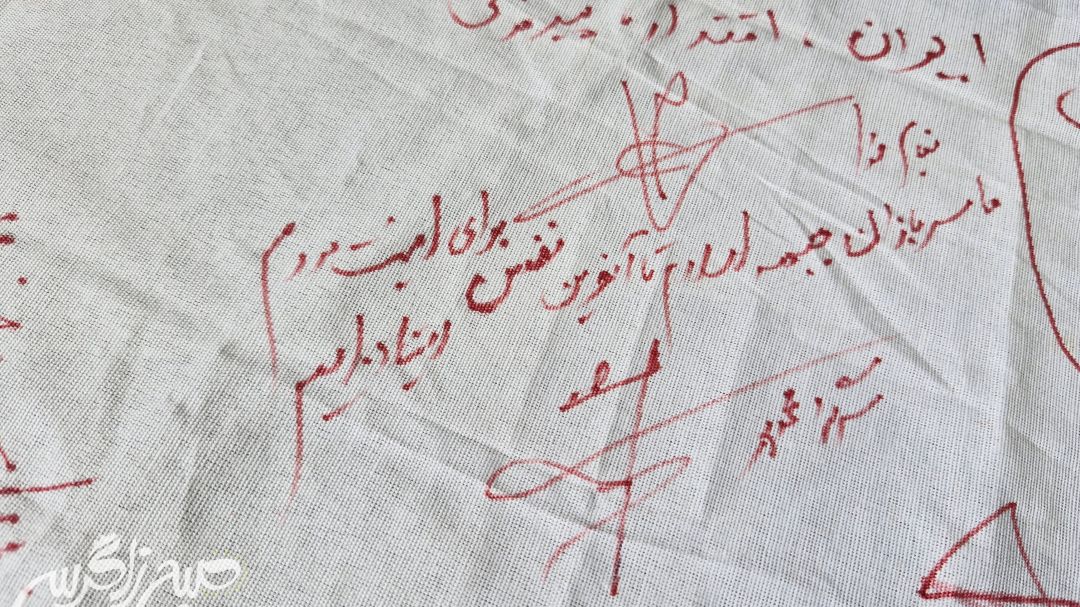 ایران . اقتدار . پیروزی
بنام خدا
ما سربازان جبهه اسلام تا آخرین نفس برای امنیت مردم
ایستاده‌ایم
صبح زاگرس